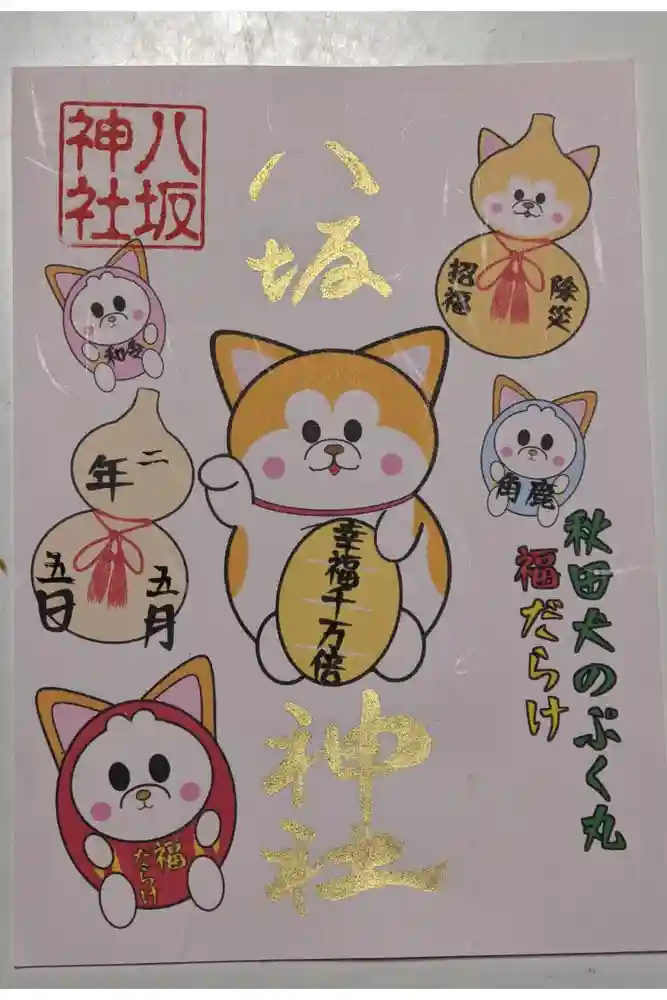 八坂
神社
八坂
神社
除災
招福
角鹿
秋田犬のぷく丸
福だらけ
幸福千万倍
二
年
五月
五日
福
だらけ